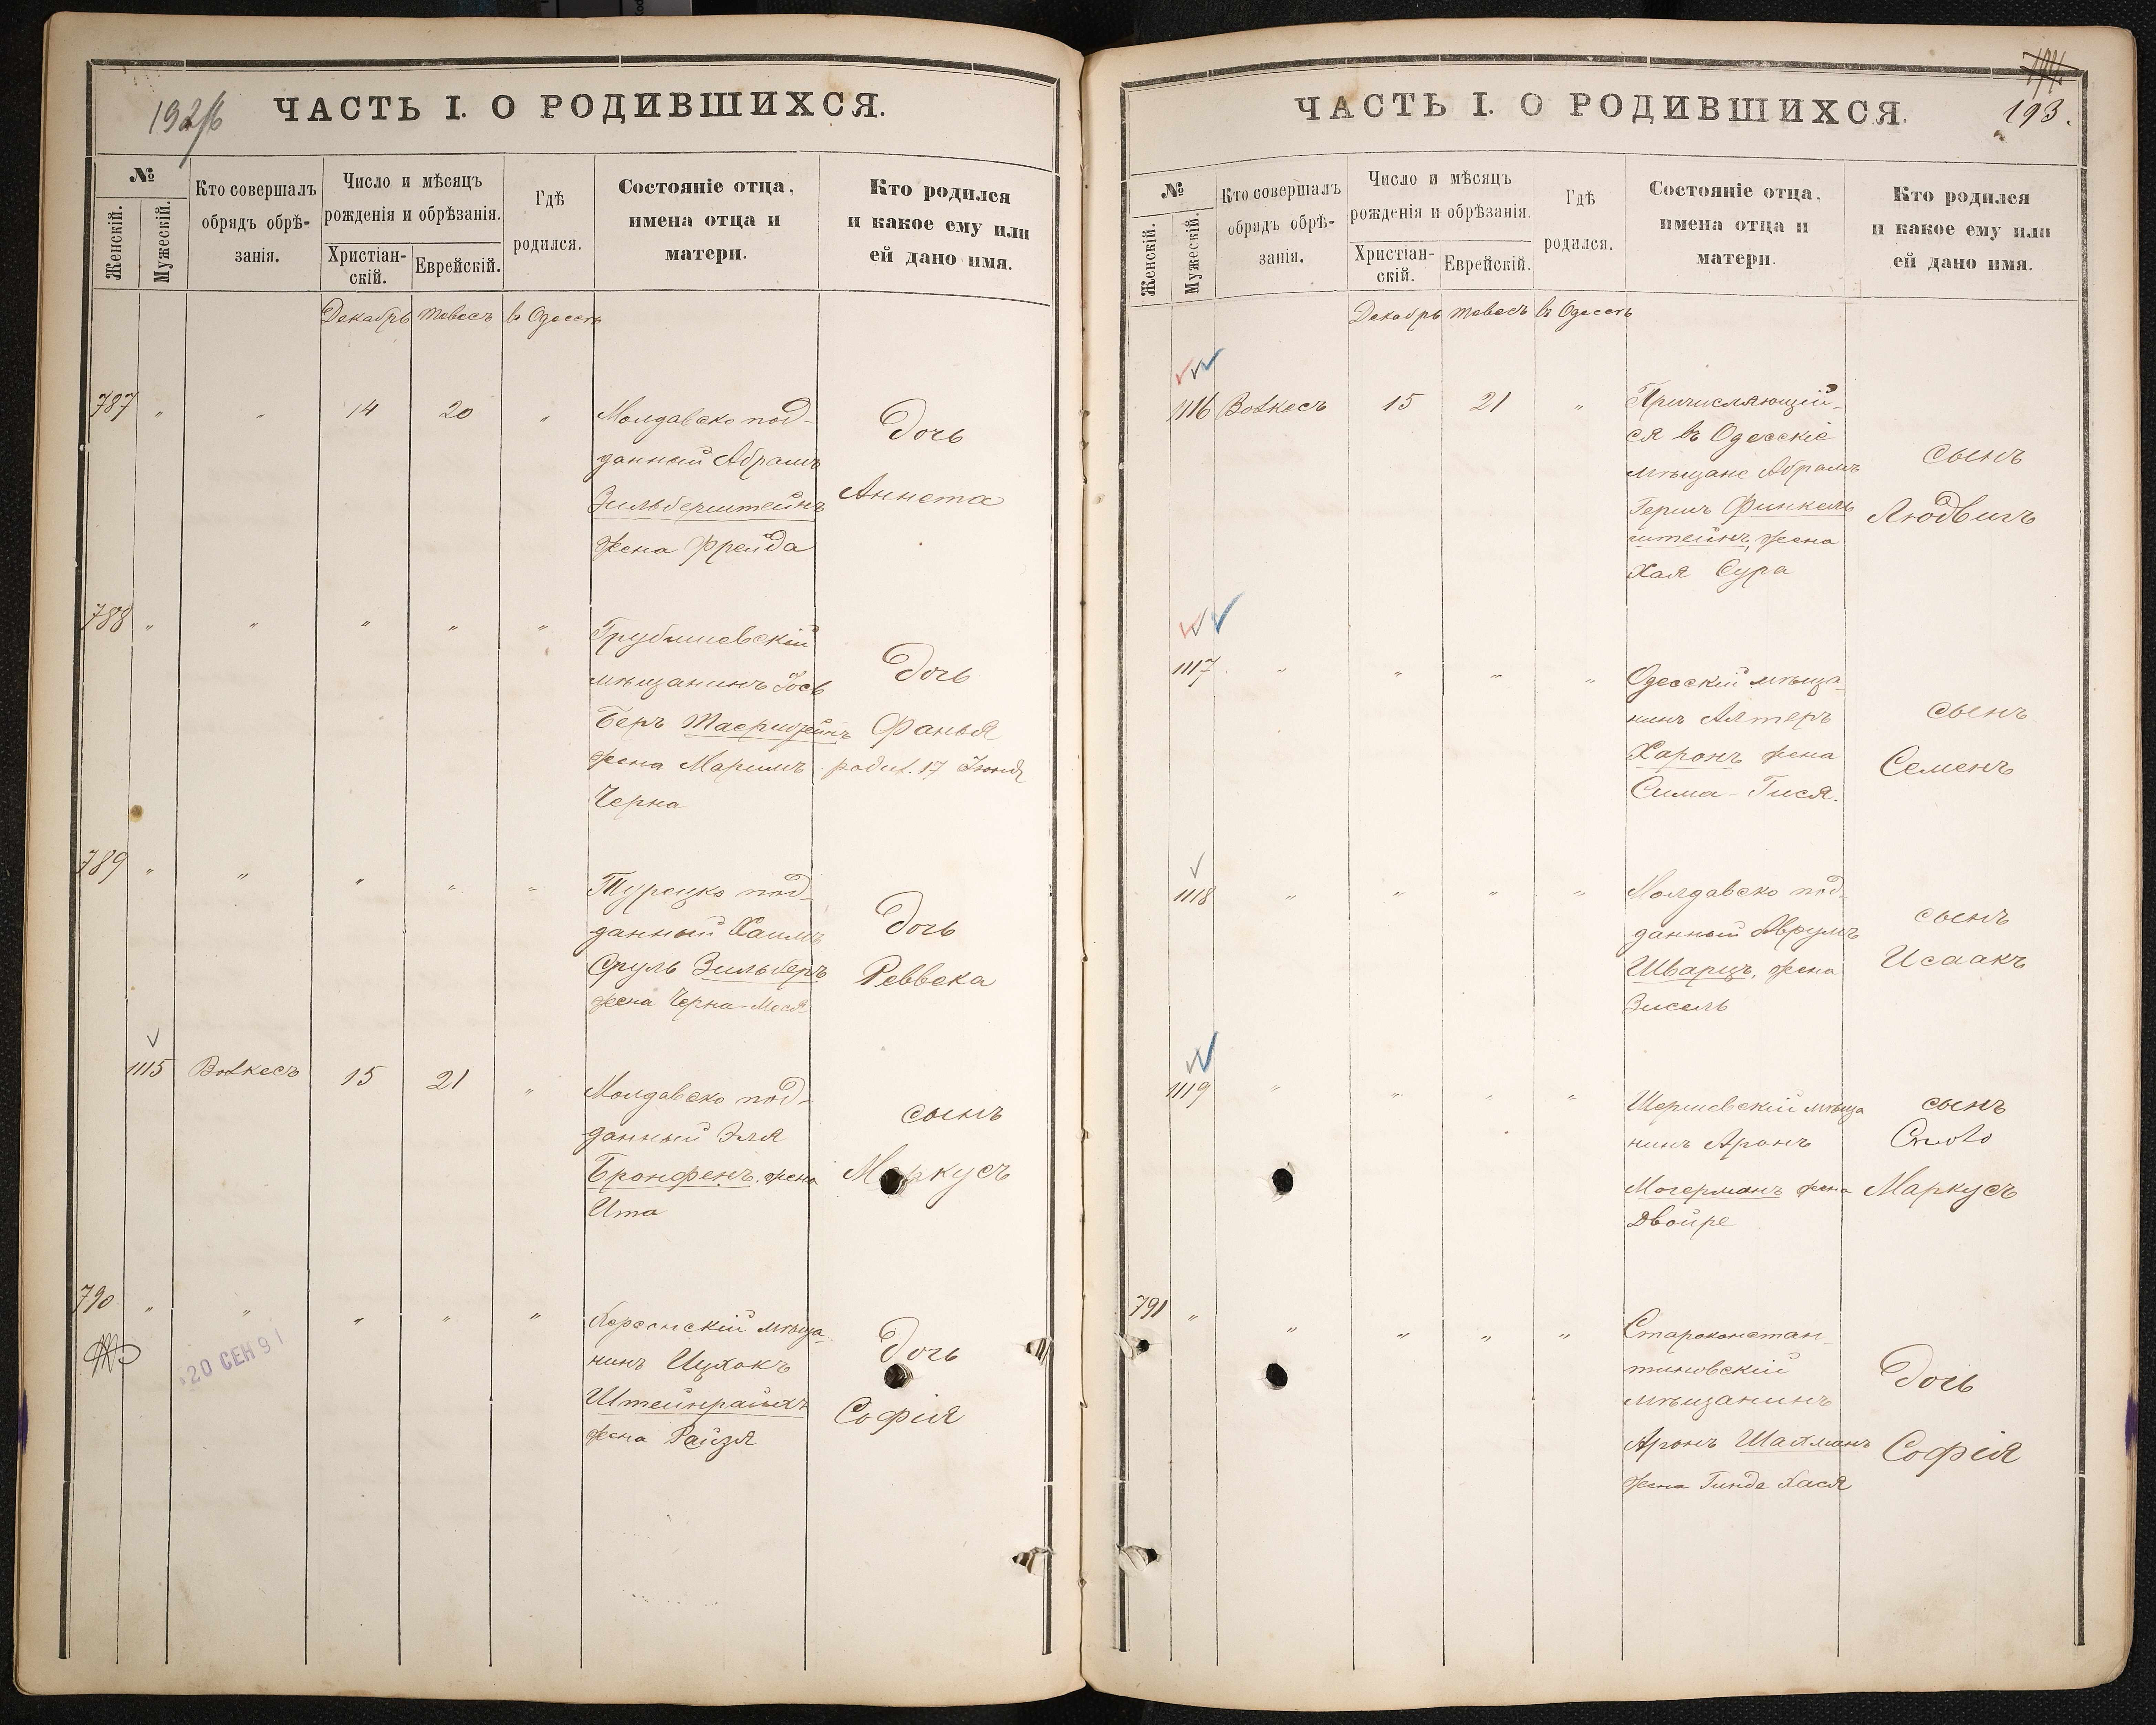 192/б
ЧАСТЬ I. О РОДИВШИХСЯ.
№
Женскій.
Мужескій.
Кто совершалъ
обрядъ обрѣ-
занія.
Число и мѣсяцъ
рожденія и обрѣзанія.
Христіан-
скій.
Еврейскій.
Гдѣ
родился.
Состояніе отца,
имена отца и
матери.
Кто родился
и какое ему или
ей дано имя.
Декабрь Тевесъ въ Одессѣ
787 " " 14 20 "
Молдавско под-
данный Абрамъ
Зильберштейнъ
жена Фрейда
Дочь
Аннета
788 " " " " "
мѣщанинъ Іось
Беръ
жена Маримъ
Черна
Дочь
Фанья
родил. 17 Іюня
789 " " " " "
Турецко под-
данный Хаимъ
Сруль Зильберъ
жена Черна-Мося
Дочь
Реввека
1115 Волкесъ 15 21 "
Молдавско под-
данный Эля
Бронфенъ, жена
Ита
сынъ
Маркусъ
790 " " " " "
20 СЕН 91
Херсонскій мѣща-
нинъ Ицхокъ
Штейнрайхъ
жена Райзя
Дочь
Софія
193.
ЧАСТЬ I. О РОДИВШИХСЯ.
№
Женскій.
Мужескій.
Кто совершалъ
обрядъ обрѣ-
занія.
Число и мѣсяцъ
рожденія и обрѣзанія.
Христіан-
скій.
Еврейскій.
Гдѣ
родился.
Состояніе отца,
имена отца и
матери.
Кто родился
и какое ему или
ей дано имя.
Декабрь Тевесъ въ Одессѣ
1116 Волкесъ 15 21 "
Причисляющій-
ся въ Одесскіе
мѣщане Абрамъ
Гершъ Финкель
штейнъ, жена
Хая Сура
сынъ
Людвигъ
1117 " " " "
Одесскій мѣща-
нинъ Алтеръ
Харонъ жена
Сима-Гися.
сынъ
Семенъ
1118 " " " "
Молдавско под-
данный Аврумъ
Шварцъ, жена
Зисель
сынъ
Исаакъ
1119 " " " "
мѣща
нинъ Аронъ
Могерманъ жена
Двойре
сынъ
Маркусъ
791 " " " " "
Староконстан-
тиновскій
мѣщанинъ
Аронъ Шахманъ
жена Гинда Хася
Дочь
Софія